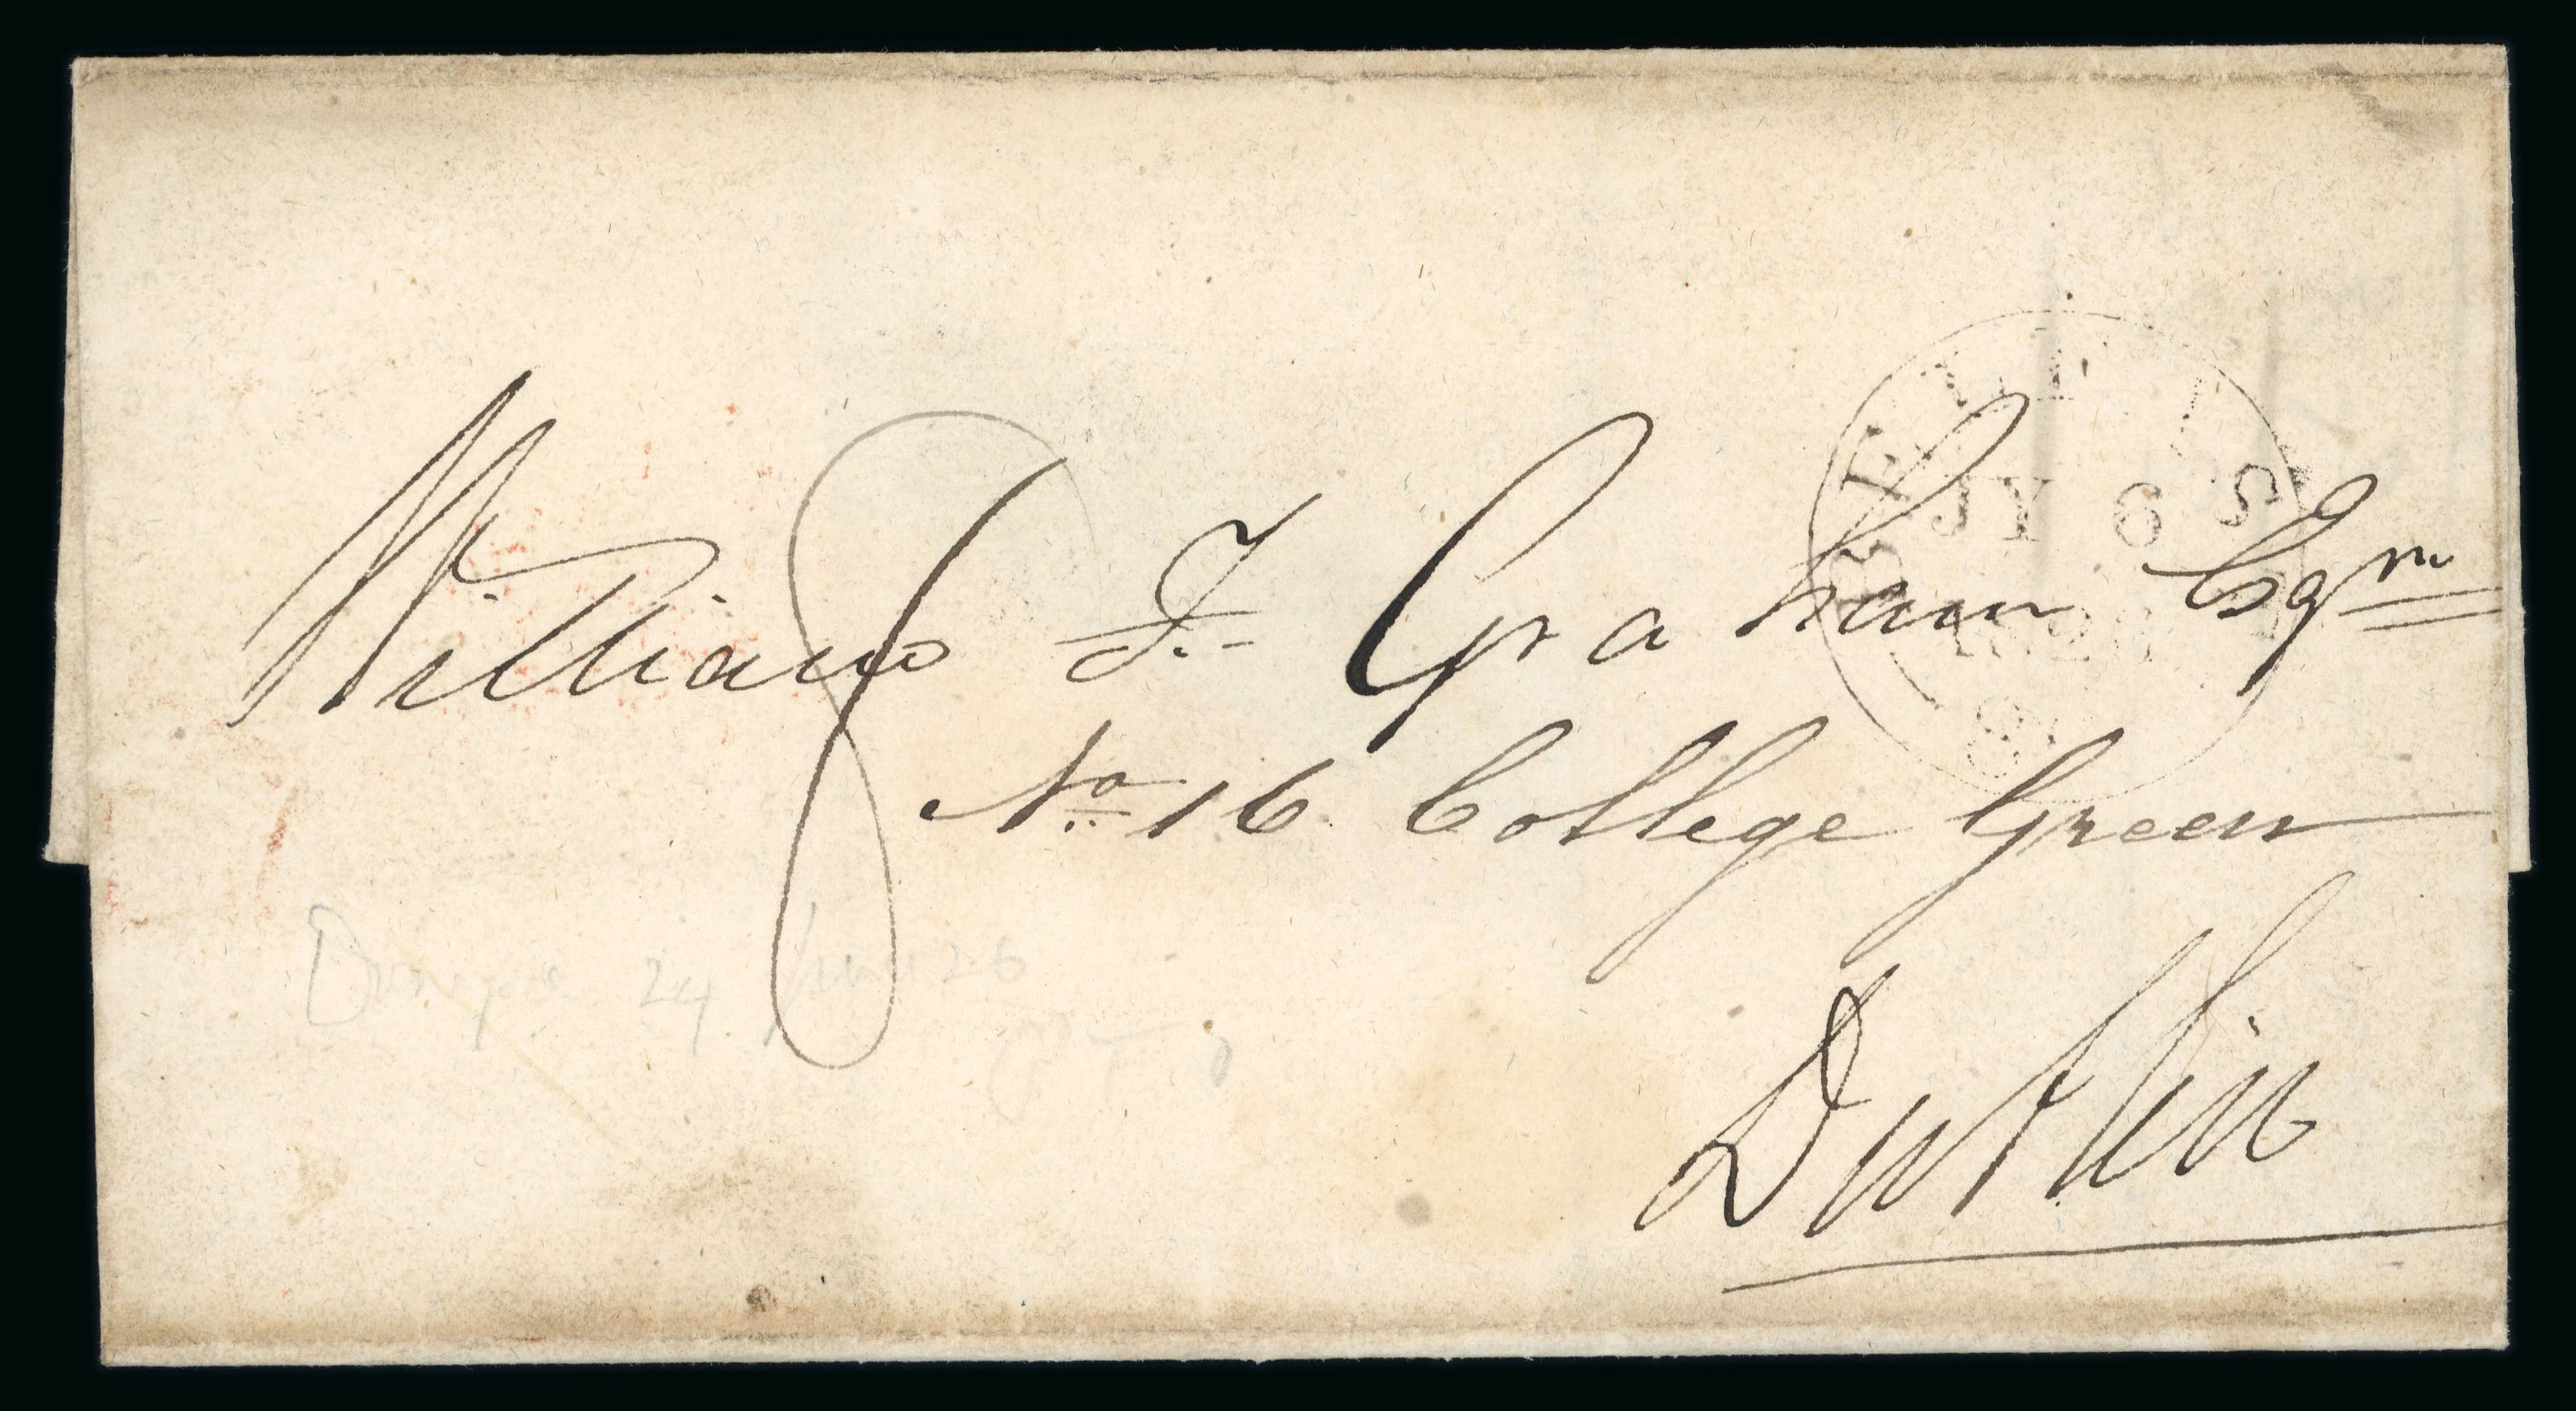 BELFAST
JY 6
1826
80
William T. Graham Esqr
No 16 College Green
Dublin
24 June 26